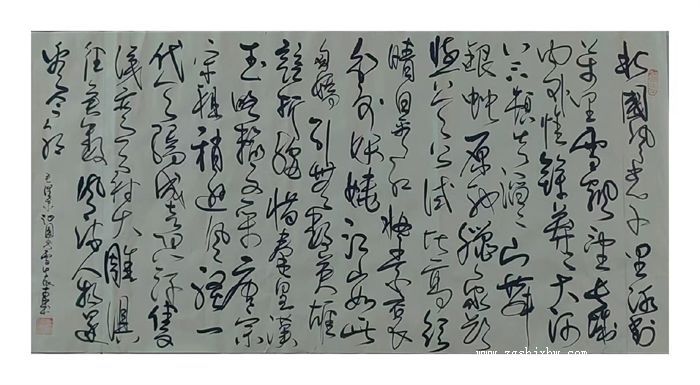 北國风光千里冰封
萬里雪飘望长城
内外惟馀莽莽大河
上下顿失滔滔山舞
銀蛇原驰腊象欲
与天公试比高须
晴日看红妆素裹
分外妖娆江山如此
多嬌引無数英雄
競折腰惜秦皇漢
武略输文采唐宗
宋祖稍逊风骚一
代天骄成吉思汗只
識弯弓射大雕俱
往矣数風流人物还
看今朝
毛泽东沁园春雪
www.zgshixhw.com